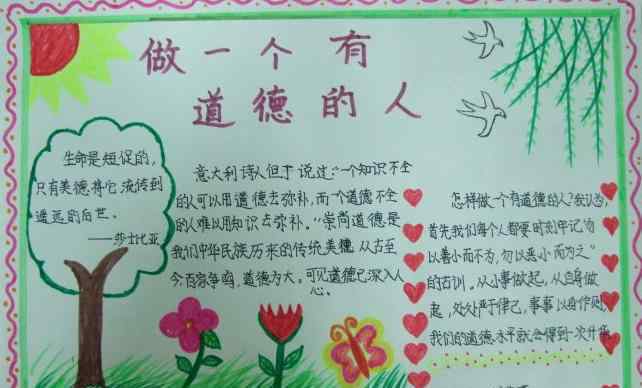 做一个有
道德的人
生命是短促的，
只有美德将它流传到
遥远的后世。
——莎士比亚
意大利诗人但丁说过："一个知识不全
的人可以用道德去弥补，而一个道德不全
的人难以用知识去弥补。"崇尚道德是
我们中华民族历来的传统美德。从古至
今百家争鸣，道德为大。可见道德已深入人
心。
怎样做一个有道德的人？我认为，
首先我们每个人都要时刻牢记"勿
以善小而不为，勿以恶小而为之"
的古训。从小事做起，从自身做
起，处处严于律己，事事以身作则，
我们的道德水平就会得到一次升华